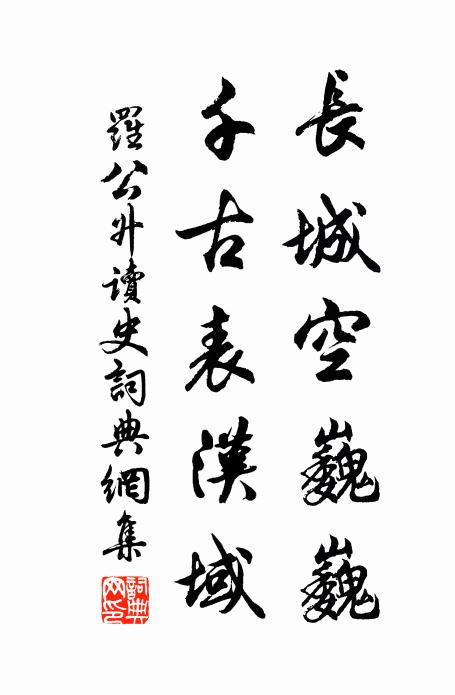 長城空巍巍
千古表漢域
羅公升讀史詞典網集
詞典网印